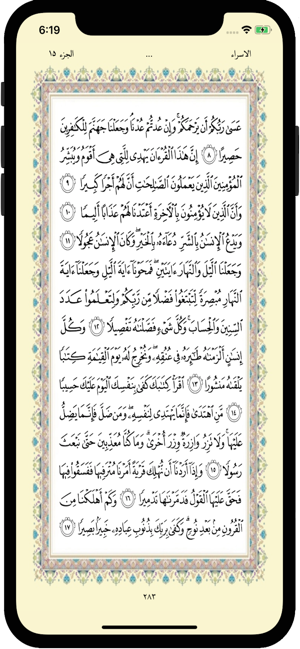 6:19
الاسراء ... الجزء ١٥
عَسَىٰ رَبُّكُمْ أَن يَرْحَمَكُمْ ۚ وَإِنْ عُدتُّمْ عُدْنَا ۘ وَجَعَلْنَا جَهَنَّمَ لِلْكَٰفِرِينَ
حَصِيرًا ٨ إِنَّ هَٰذَا ٱلْقُرْءَانَ يَهْدِى لِلَّتِى هِىَ أَقْوَمُ وَيُبَشِّرُ
ٱلْمُؤْمِنِينَ ٱلَّذِينَ يَعْمَلُونَ ٱلصَّٰلِحَٰتِ أَنَّ لَهُمْ أَجْرًا كَبِيرًا ٩
وَأَنَّ ٱلَّذِينَ لَا يُؤْمِنُونَ بِٱلْءَاخِرَةِ أَعْتَدْنَا لَهُمْ عَذَابًا أَلِيمًا ١٠
وَيَدْعُ ٱلْإِنسَٰنُ بِٱلشَّرِّ دُعَآءَهُۥ بِٱلْخَيْرِ ۖ وَكَانَ ٱلْإِنسَٰنُ عَجُولًا ١١
وَجَعَلْنَا ٱلَّيْلَ وَٱلنَّهَارَ ءَايَتَيْنِ ۖ فَمَحَوْنَآ ءَايَةَ ٱلَّيْلِ وَجَعَلْنَآ ءَايَةَ
ٱلنَّهَارِ مُبْصِرَةً لِّتَبْتَغُوا۟ فَضْلًا مِّن رَّبِّكُمْ وَلِتَعْلَمُوا۟ عَدَدَ
ٱلسِّنِينَ وَٱلْحِسَابَ ۚ وَكُلَّ شَىْءٍ فَصَّلْنَٰهُ تَفْصِيلًا ١٢ وَكُلَّ
إِنسَٰنٍ أَلْزَمْنَٰهُ طَٰٓئِرَهُۥ فِى عُنُقِهِۦ ۖ وَنُخْرِجُ لَهُۥ يَوْمَ ٱلْقِيَٰمَةِ كِتَٰبًا
يَلْقَىٰهُ مَنشُورًا ١٣ ٱقْرَأْ كِتَٰبَكَ كَفَىٰ بِنَفْسِكَ ٱلْيَوْمَ عَلَيْكَ حَسِيبًا
١٤ مَّنِ ٱهْتَدَىٰ فَإِنَّمَا يَهْتَدِى لِنَفْسِهِۦ ۖ وَمَن ضَلَّ فَإِنَّمَا يَضِلُّ
عَلَيْهَا ۚ وَلَا تَزِرُ وَازِرَةٌ وِزْرَ أُخْرَىٰ ۗ وَمَا كُنَّا مُعَذِّبِينَ حَتَّىٰ نَبْعَثَ
رَسُولًا ١٥ وَإِذَآ أَرَدْنَآ أَن نُّهْلِكَ قَرْيَةً أَمَرْنَا مُتْرَفِيهَا فَفَسَقُوا۟ فِيهَا
فَحَقَّ عَلَيْهَا ٱلْقَوْلُ فَدَمَّرْنَٰهَا تَدْمِيرًا ١٦ وَكَمْ أَهْلَكْنَا مِنَ
ٱلْقُرُونِ مِنۢ بَعْدِ نُوحٍ ۗ وَكَفَىٰ بِرَبِّكَ بِذُنُوبِ عِبَادِهِۦ خَبِيرًۢا بَصِيرًا ١٧
٢٨٣